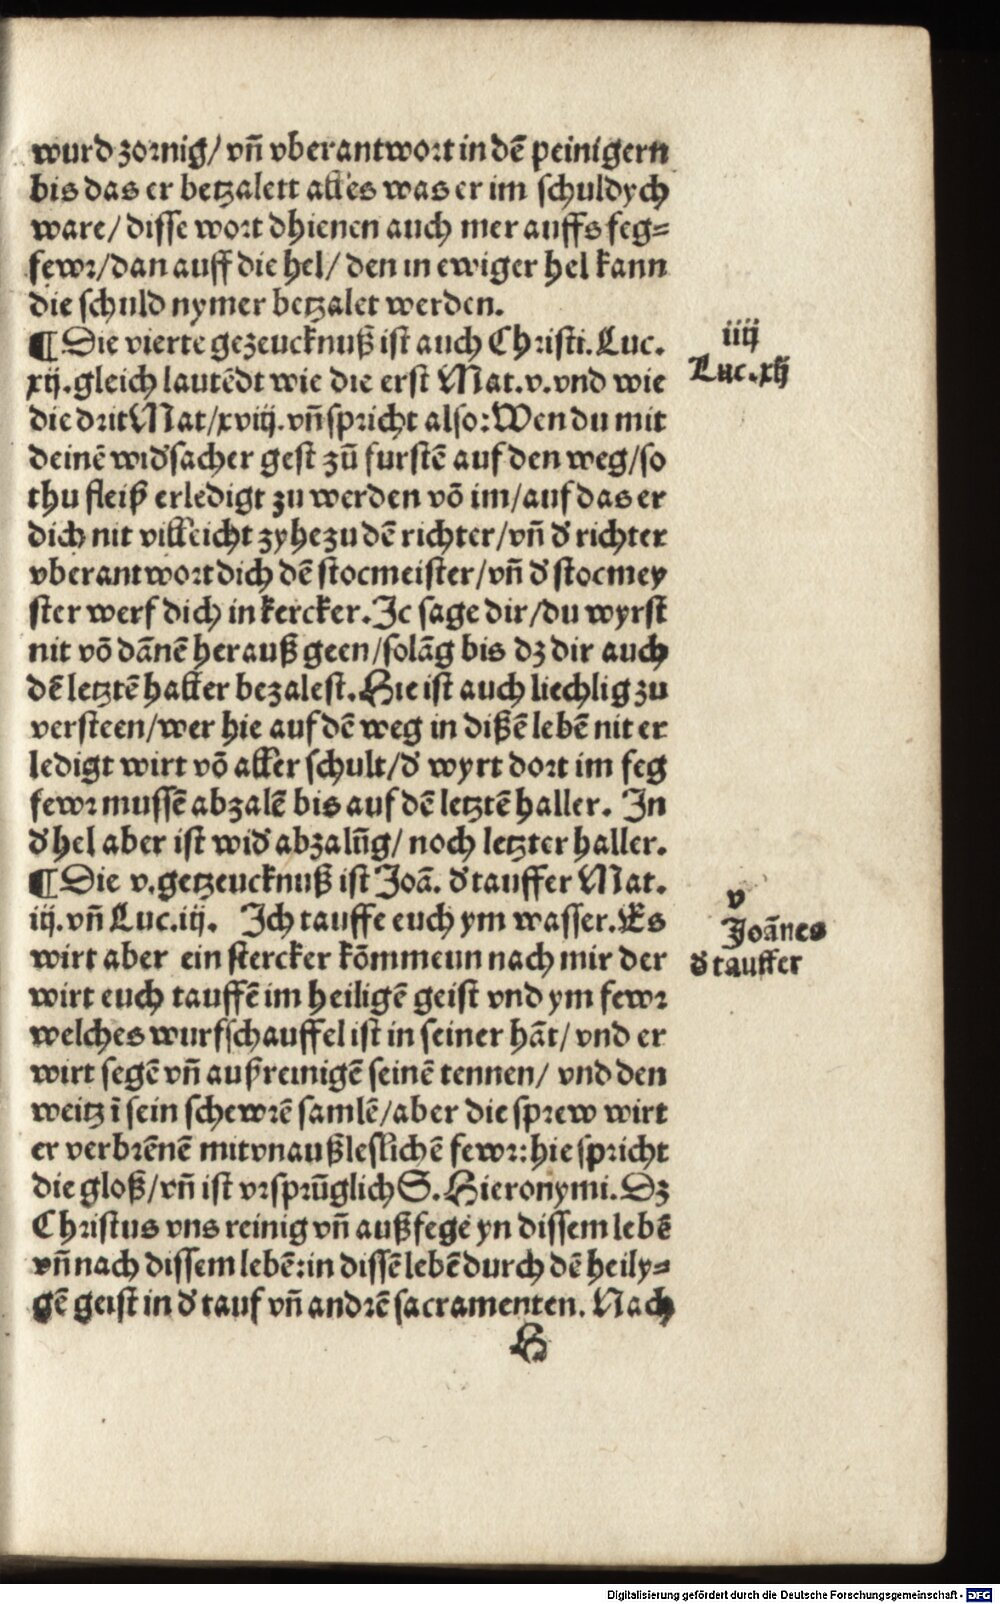 wurd zornig/ vñ vberantwort in dē peinigern
bis das er betzalett alles was er im schuldych
ware/ disse wort dhienen auch mer auffs feg⸗
fewr/ dan auff die hel/ den in ewiger hel kann
die schuld nymer betzalet werden.
¶ Die vierte gezeucknuß ist auch Christi. Luc.
xij. gleich lautēdt wie die erst Mat. v. vnd wie
die drit Mat/ xviij. vñ spricht also: Wen du mit
deinē wid̕sacher gest zū furstē auf den weg/ so
thu fleiß erledigt zu werden vō im/ auf das er
dich nit villeicht zyhe zu dē richter/ vñ d̕ richter
vberantwort dich dē stocmeister/ vñ d̕ stocmey
ster werf dich in kercker. Ic sage dir/ du wyrst
nit vō dānē herauß geen/ solāg bis dz dir auch
dē letztē haller bezalest. Hie ist auch liechlig zu
versteen/ wer hie auf dē weg in dißē lebē nit er
ledigt wirt vō aller schult/ d̕ wyrt dort im feg
fewr mussē abzalē bis auf dē letztē haller. In
d̕ hel aber ist wid̕ abzalūg/ noch letzter haller.
¶ Die v. getzeucknuß ist Joā. d̕ tauffer Mat.
iij. vñ Luc. iij. Ich tauffe euch ym wasser. Es
wirt aber ein stercker kōmmeun nach mir der
wirt euch tauffē im heiligē geist vnd ym fewr
welches wurfschauffel ist in seiner hāt/ vnd er
wirt segē vñ außreinigē seinē tennen/ vnd den
weitz ī sein schewrē samlē/ aber die sprew wirt
er verbrēnē mit vnaußleslichē fewr: hie spricht
die gloß/ vñ ist vrsprūglich S. Hieronymi. Dz
Christus vns reinig vñ außfege yn dissem lebē
vñ nach dissem lebē: in dissē lebē durch dē heily⸗
gē geist in d̕ tauf vñ andrē sacramenten. Nach
H
iiij
Luc. xij
v
Joānes
d̕ tauffer
Digitalisierung gefördert durch die Deutsche Forschungsgemeinschaft - DFG